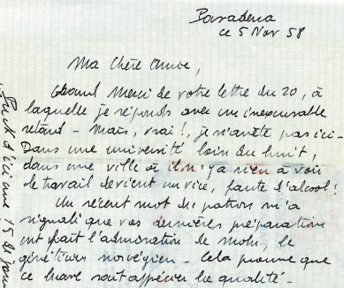 Pasadena
ce 5 Nov 58
Ma Chère Amie,
Grand Merci de votre lettre du 20, à
laquelle je réponds avec un inexcusable
retard - Mais, vrai!, je n'arrête pas ici -
Dans une université loin du bruit,
dans une ville où il n'y a rien à voir
le travail devient un vice, faute d'alcool!
Un récent mot du patron m'a
signalé que vos dernières préparations
ont fait l'admiration de Mohr, le
généticien norvégien - Cela prouve que
ce brave sait apprécier la qualité -
d'ici